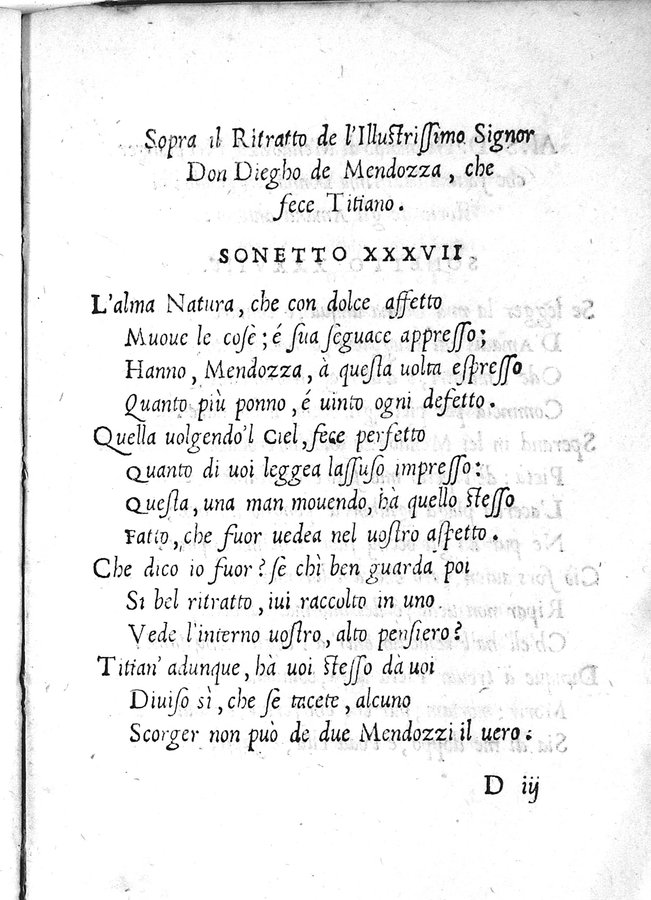 Sopra il Ritratto de l'Illustrissimo Signor
Don Diegho de Mendozza, che
fece Titiano.
SONETTO XXXVII.
L'alma Natura, che con dolce affetto
Muoue le cose; é sua seguace appresso;
Hanno, Mendozza, à questa uolta espresso
Quanto più ponno, é uinto ogni defetto.
Quella uolgendo'l Ciel, fece perfetto
Quanto di uoi leggea lassuso impresso:
Questa, una man mouendo, hà quello stesso
Fatto, che fuor uedea nel uostro aspetto.
Che dico io fuor? se chì ben guarda poi
Si bel ritratto, iui raccolto in uno
Vede l'interno uostro, alto pensiero?
Titian' adunque, hà uoi stesso dà uoi
Diuiso sì, che se tacete, alcuno
Scorger non può de due Mendozzi il uero.
D iij